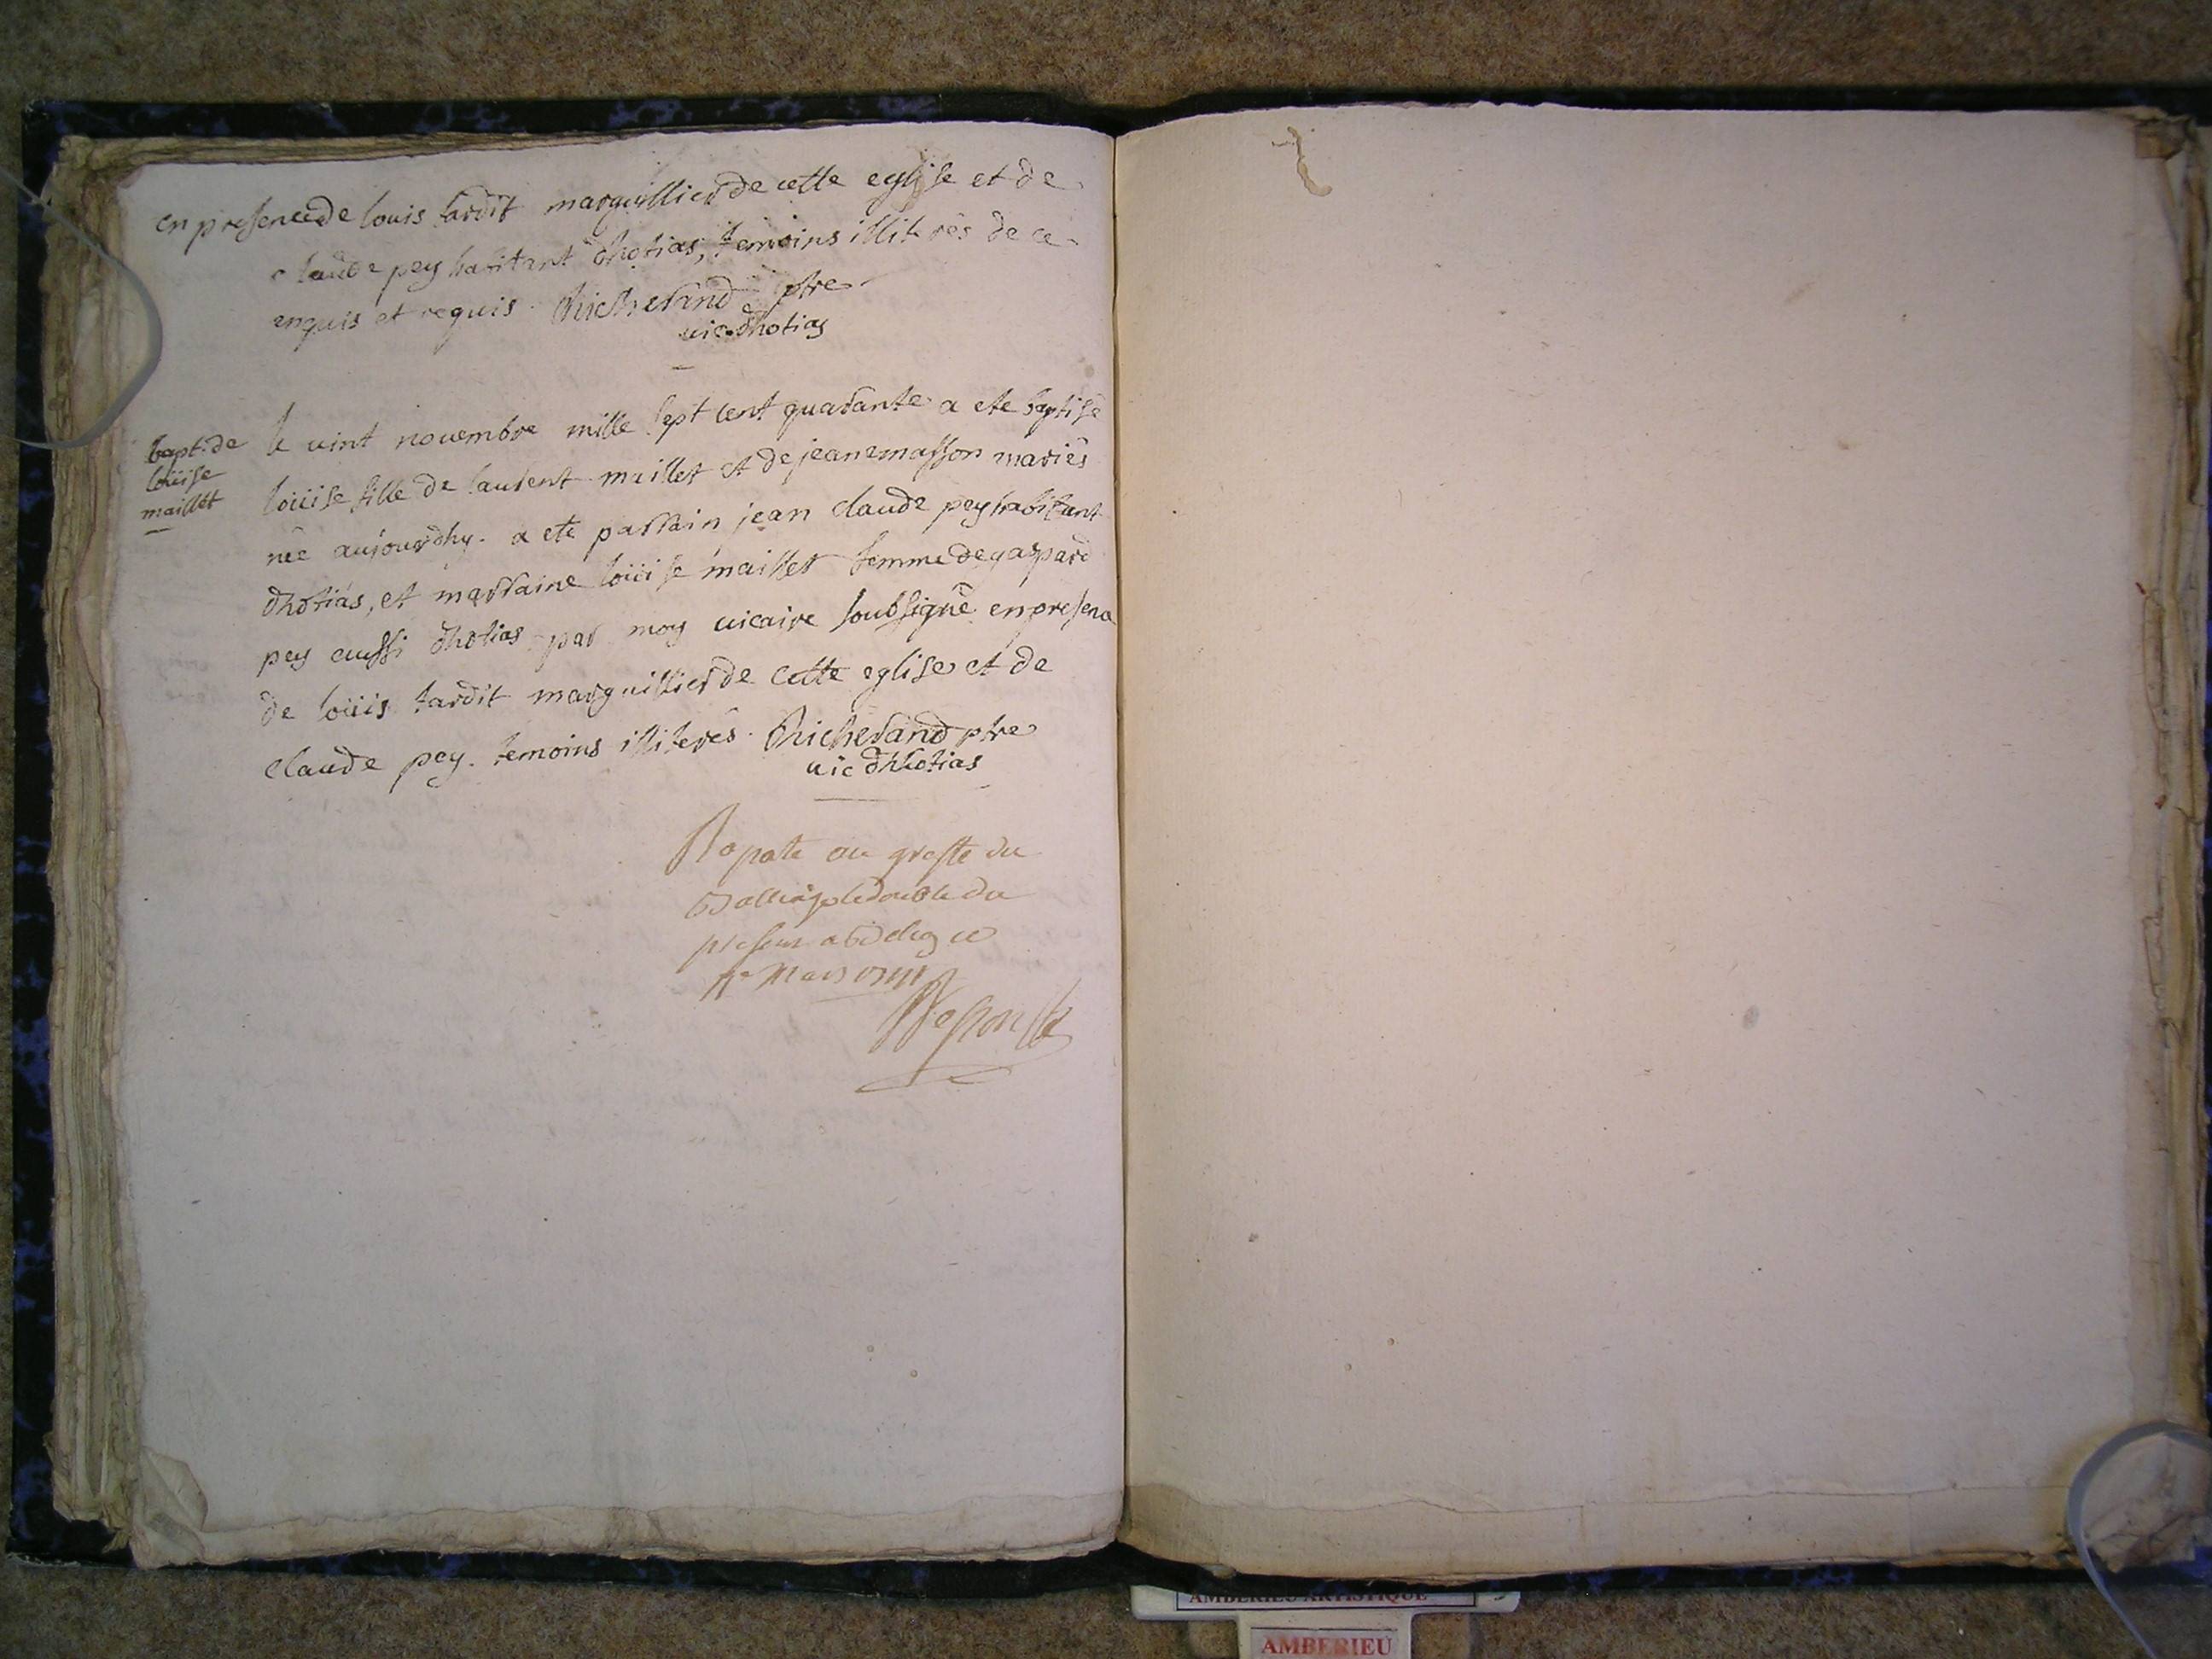 en presence de louis tardit marguillier de cette eglise et de
claude pey habitant dhotias, temoins illiterés de ce
enquis et requis. Richerand ptre
vic. dhotias
bapt. de
loüise
maillet
le vint novembre mille sept cent quarante a ete baptisé
loüise fille de laurent maillet et de jeane masson mariés
née aujourdhy. a eté parrain jean claude pey habitant
dhotias, et marraine loüise maillet femme de gaspard
pey aussi dhotias par moy vicaire soubsigné en presence
de loüis tardit marguillier de cette eglise et de
claude pey. temoins illiterés. Richerand ptre
vic dhhotias
au greffe du
le double du
present
Mars
AMBERIEU ARTISTIQUE
AMBERIEU